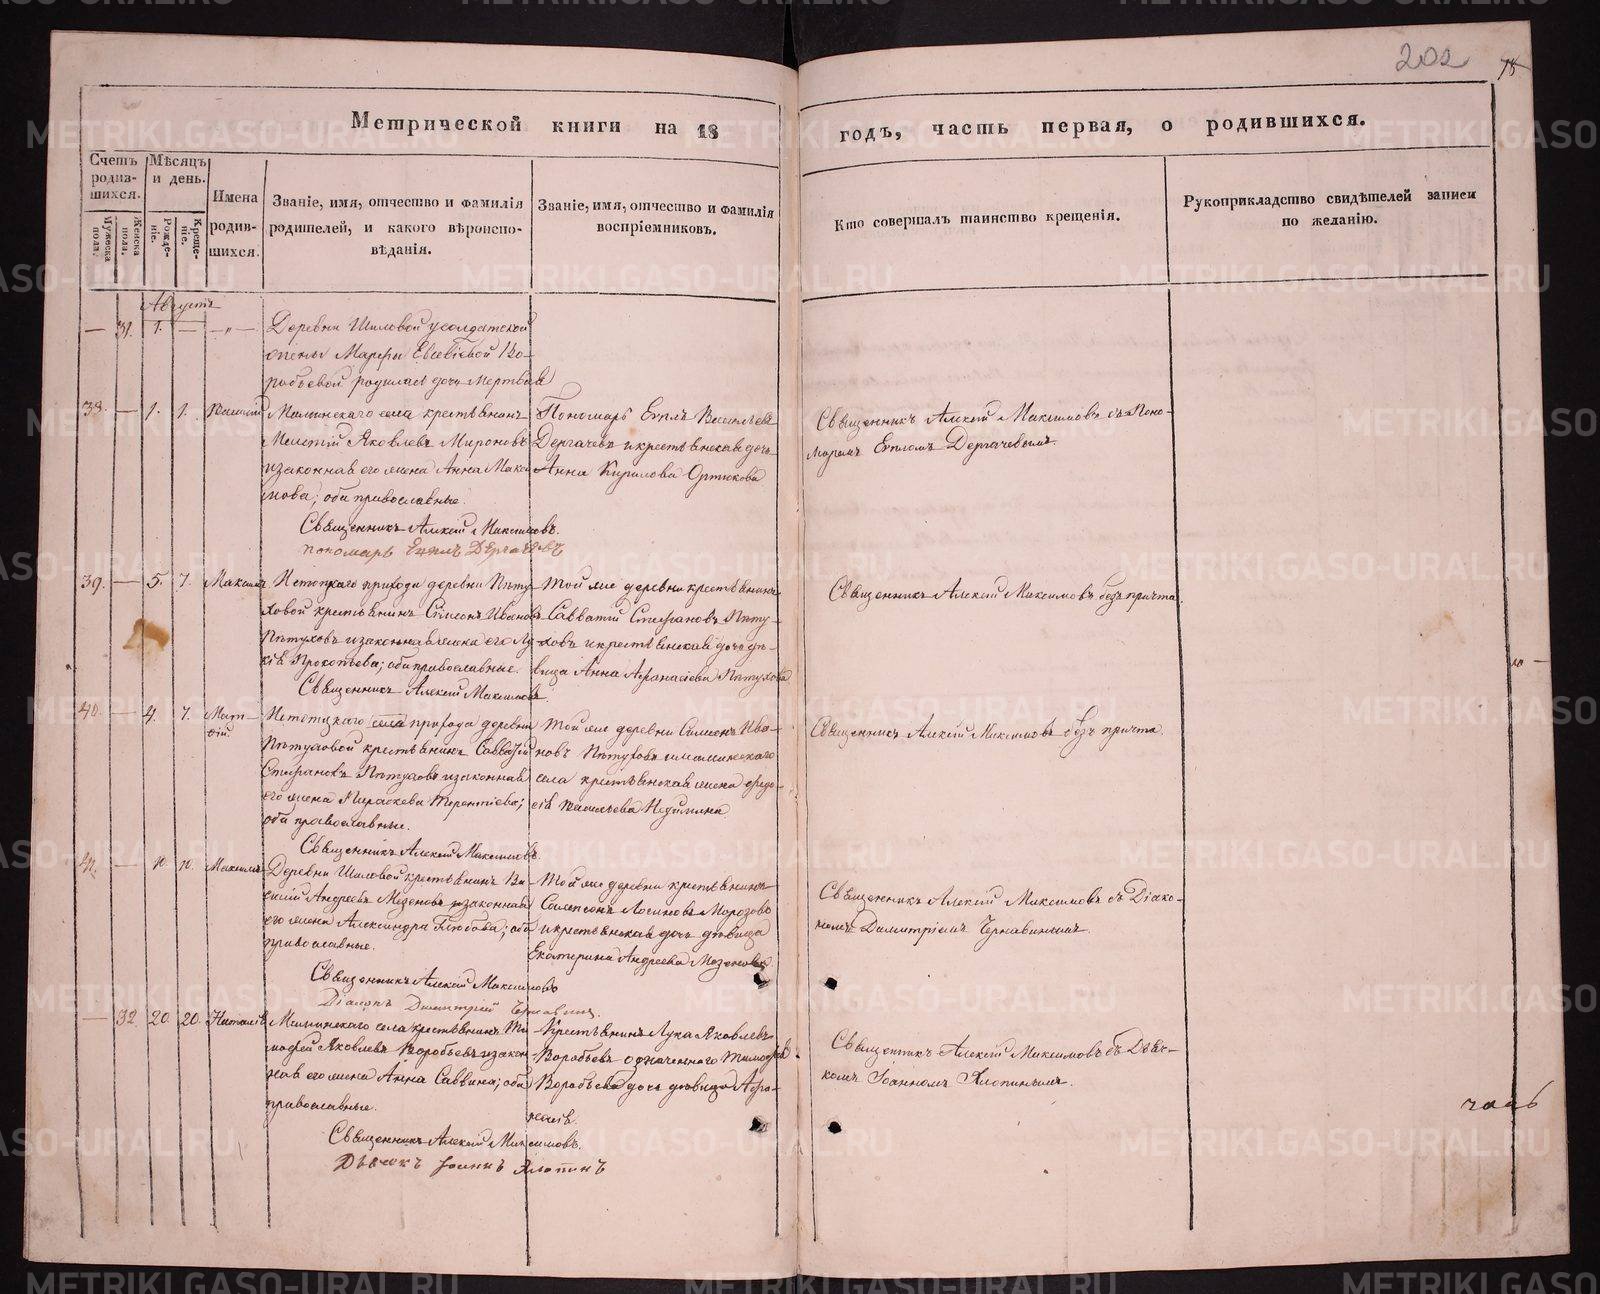 202
78
Метрической книги на 18
годъ, часть первая, о родившихся.
Счетъ родив-шихся.
Мѣсяцъ и день.
Мужеска пола.
Женска пола.
Рожде-ніе.
Креще-ніе.
Имена родив-шихся.
Званіе, имя, отчество и фамилія родителей, и какого вѣроиспо-вѣданія.
Званіе, имя, отчество и фамилія воспріемниковъ.
Кто совершалъ таинство крещенія.
Рукоприкладство свидѣтелей записи по желанію.
Августъ
— 31. 1. — —"—
Деревни Шиловой у солдатской
жены Марфы Евсевіевой Во-
робьевой родилась дочь мертвая
38. — 1. 1.
Малинскаго села крестьянинъ
Мелетій Яковлевъ Мироновъ
и законная его жена Анна Макси
мова; оба православные.
Священникъ Алексій Максимовъ.
пономарь Евплъ Дергачевъ
Пономарь Евплъ Васильевъ
Дергачевъ и крестьянская дочь
Анна Кирилова Ортюкова
Священникъ Алексій Максимовъ съ Поно-
маремъ Евпломъ Дергачевымъ.
39. — 5. 7. Максимъ
прихода деревни Пѣту-
ховой крестьянинъ Симеонъ Ивановъ
Пѣтуховъ и законная жена его Лу-
кія Прокопьева; оба православные.
Священникъ Алексій Максимовъ.
Той же деревни крестьянинъ
Савватій Стефановъ Пѣту-
ховъ и крестьянская дочь дѣ-
вица Анна Афанасіева Пѣтухова
Священникъ Алексій Максимовъ безъ причта
40. — 4. 7. Мат-
ѳій
села прихода деревни
Пѣтуховой крестьянинъ Савватій
Стефановъ Пѣтуховъ и законная
его жена Параскева Терентіева;
оба православные.
Священникъ Алексій Максимовъ.
Той же деревни Симеонъ Ива-
новъ Пѣтуховъ и малинскаго
села крестьянская жена Ѳедо-
сія Васильева
Священникъ Алексій Максимовъ безъ причта.
41. — 10. 10. Максимъ
Деревни Шиловой крестьянинъ Ва-
силій Андреевъ Мезеновъ и законная
его жена Александра Глѣбова; оба
православные.
Священникъ Алексій Максимовъ
Діаконъ Димитрій Чернавинъ.
Той же деревни крестьянинъ
Сампсонъ Логиновъ Морозовъ
и крестьянская дочь дѣвица
Екатерина Андреева Мезенова
Священникъ Алексій Максимовъ съ Діако-
номъ Димитріемъ Чернавинымъ.
— 32. 20. 20. Наталія
Малинскаго села крестьянинъ Ти-
моѳей Яковлевъ Воробьевъ и закон-
ная его жена Анна Саввина; оба
православные.
Священникъ Алексій Максимовъ.
Дьячекъ Іоаннъ Хлопинъ
Крестьянинъ Лука Яковлевъ
Воробьевъ означеннаго Тимоѳея
Воробьева дочь дѣвица Афа-
насія.
Священникъ Алексій Максимовъ съ Дьяч-
комъ Іоанномъ Хлопинымъ.
METRIKI.GASO-URAL.RU